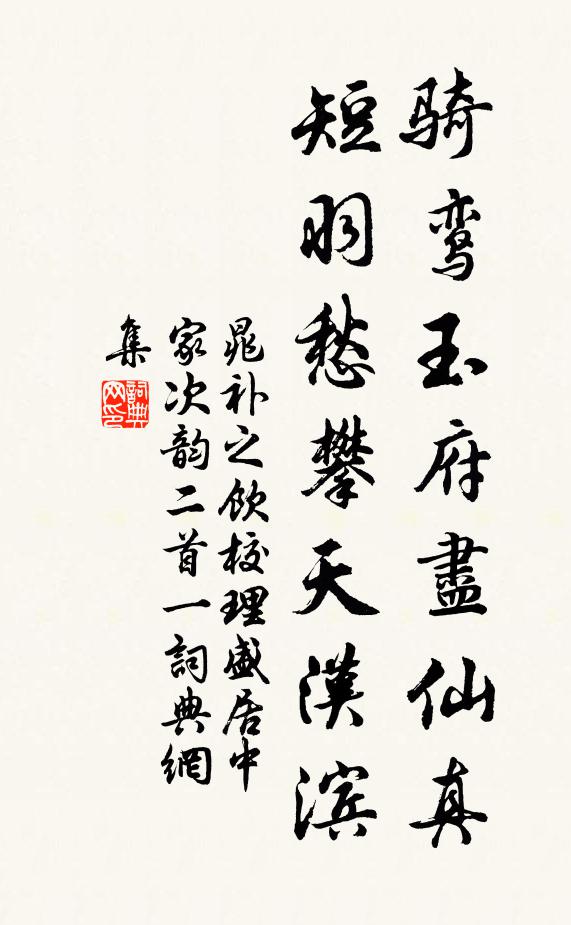 骑鸾玉府盡仙真
短羽愁攀天漢滨
晁补之飲校理盛居中
家次韵二首一詞典網
集
詞典
网印